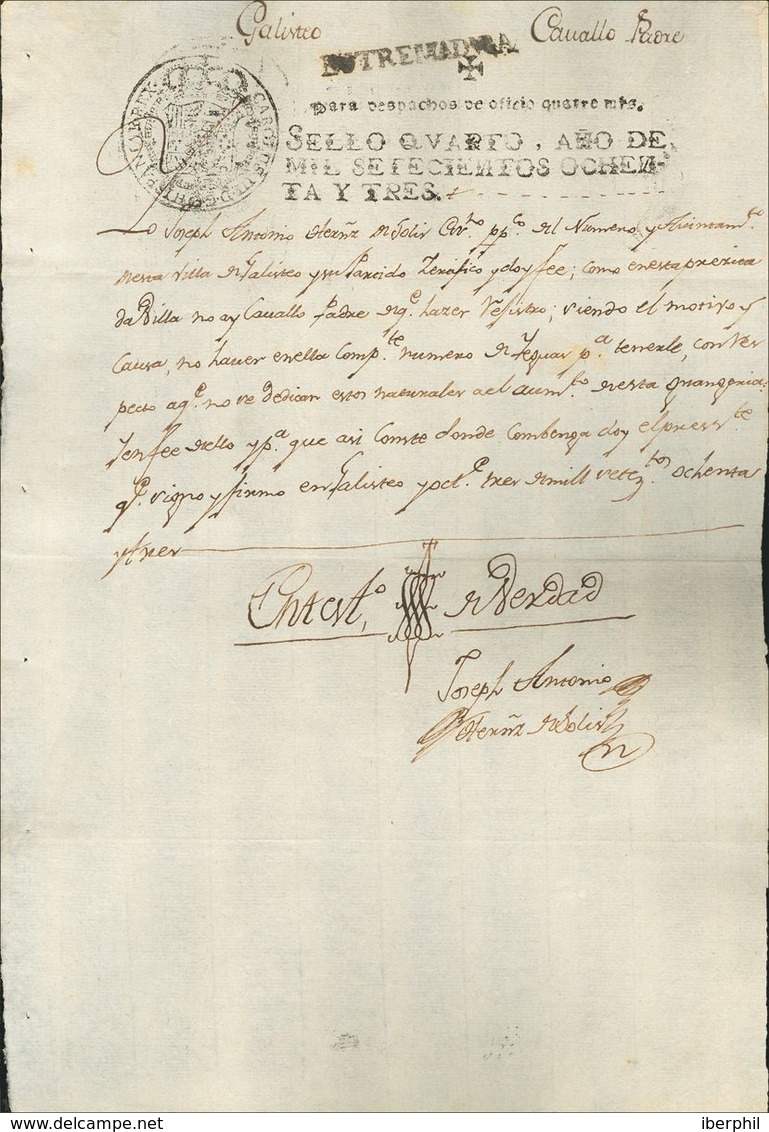 Galisteo Cavallo Padre
ESTREMADURA
CAROLUS III D G HISPANIAR REX
Para despachos de oficio quatro mrs.
SELLO QVARTO, AÑO DE
MIL SETECIENTOS OCHEN-
TA Y TRES.
Yo Joseph Antonio Herñz de Solis Scr.no pp.co del Numero y Aiuntam.to
desta Villa de Galisteo y su Partido Zertifico y doy fee; como en esta prezita
da Villa no ay Cavallo Padre de q.e hazer Rexistro; siendo el motivo y
Causa, no haver en ella Comp.te numero de Yeguas p.a tenerle, con res
pecto a q.e no se dedican estos naturales a el aum.to de esta grangeria
Y en fee de ello y p.a que asi Conste donde Combenga doy el press.te
q.e signo y firmo en Galisteo y oct.e tres de mill setez.tos ochenta
y tres
En test.o de Verdad
Joseph Antonio
Herñz de Solis
www.delcampe.net iberphil